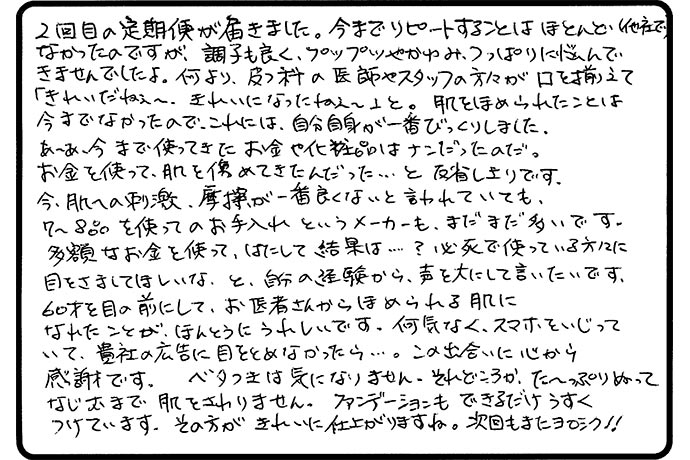 2回目の定期便が届きました。今までリピートすることは ほとんど(他社で)
なかったのですが、調子も良く、プップツやかゆみ、つっぱりに悩んで
きませんでしたよ。何より、皮フ科の医師やスタッフの方々が口を揃えて
「きれいだねぇ〜、きれいになったねぇ〜」と。肌をほめられたことは
今までなかったので、これには、自分自身が一番びっくりしました。
あ〜あ、今まで使ってきたお金や化粧品はナンだったのだ。
お金を使って、肌を傷めてきたんだった…と反省しきりです。
今、肌への刺激、摩擦が一番良くないと言われていても、
7〜8品を使ってのお手入れというメーカーも、まだまだ多いです。
多額なお金を使って、はたして結果は…?必死で使っている方々に
目をさましてほしいな、と、自分の経験から、声を大にして言いたいです。
60才を目の前にして、お医者さんからほめられる肌に
なれたことが、ほんとうにうれしいです。何気なく、スマホをいじって
いて、貴社の広告に目をとめなかったら…。この出合いに心から
感謝です。 ベタつきは気になりません。それどころか、た〜っぷりぬって
なじむまで肌をさわりません。ファンデーションもできるだけうすく
つけています。その方がきれいに仕上がりますね。次回もまたヨロシク!!